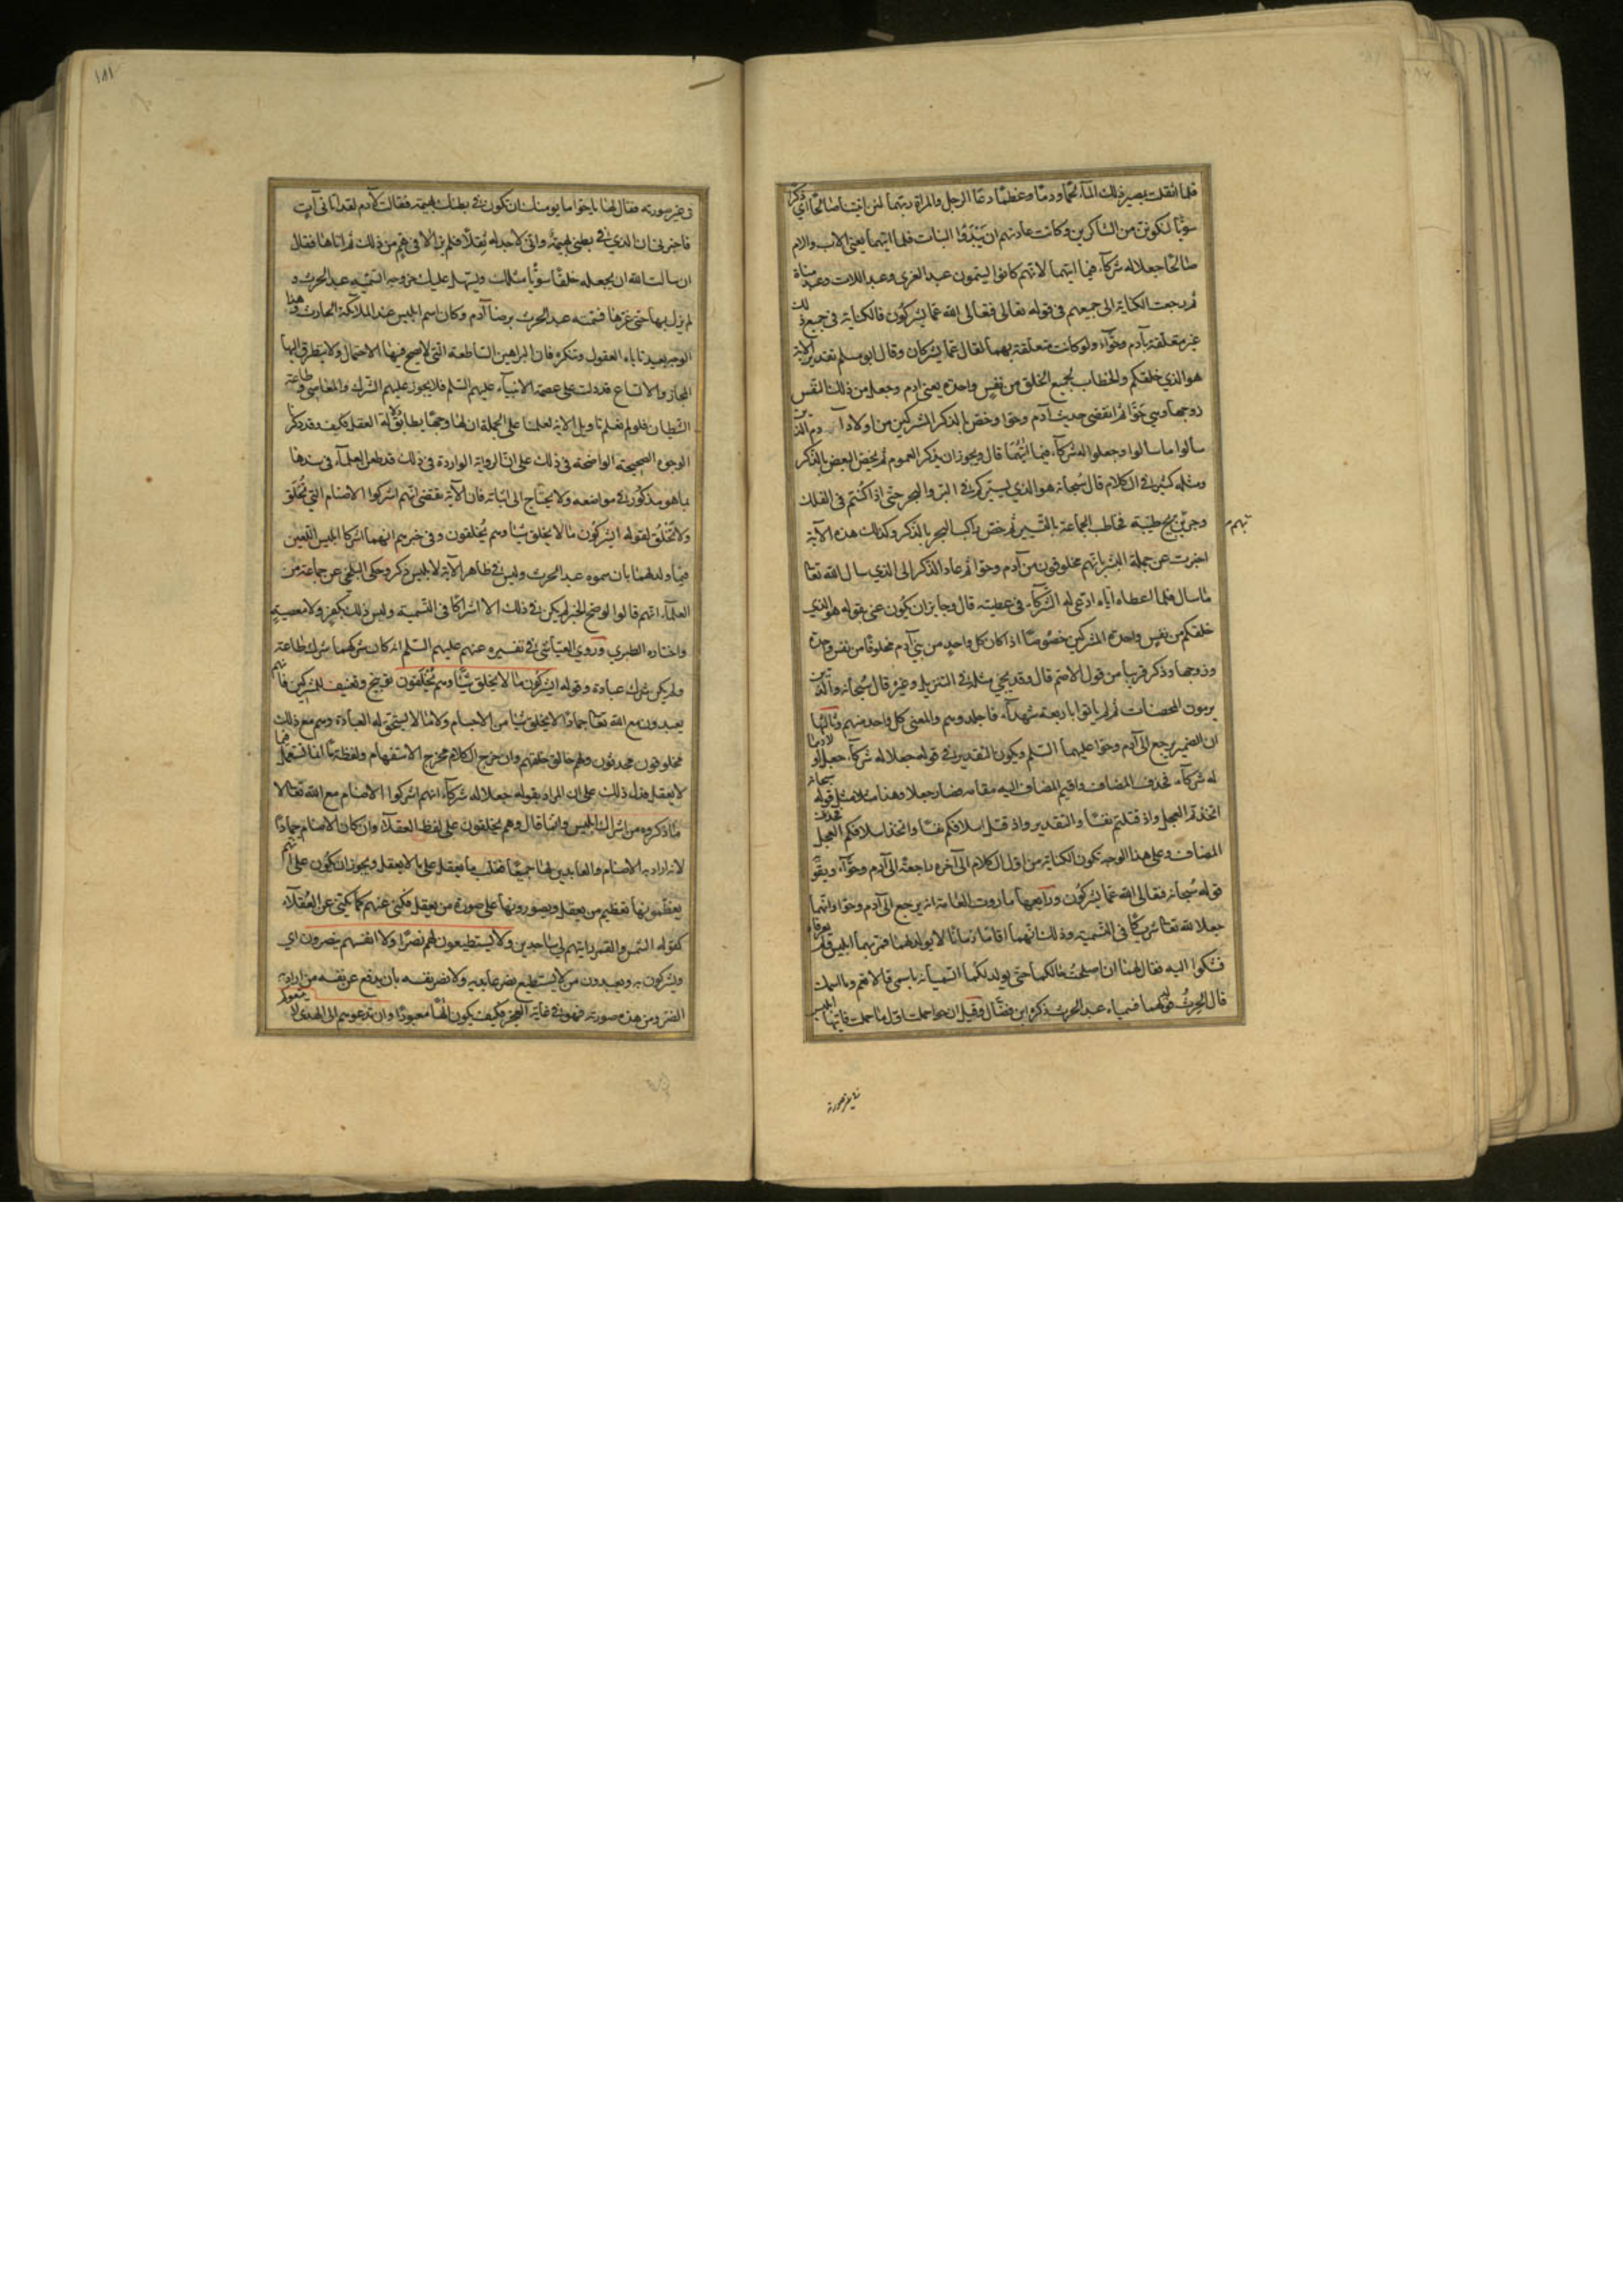 فلما اثقلت بمصير ذلك الماء لحما ودما وعظما دعا الرجل والمراة ربهما لئن اتيتنا صالحا اي ذكرا
سويا لنكونن من الشاكرين وكانت عادتهم ان يئدوا البنات فلما اتيهما يعني الاب والام
صالحا جعلا له شركاء فيما اتيهما لانهم كانوا يسمون عبد العزى وعبد اللات وعبد مناة
ثم رجعت الكناية الى جميعهم في قوله تعالى فتعالى الله عما يشركون فالكناية في جميع ذلك
غير متعلقة بآدم وحواء ولو كانت متعلقة بهما لقال عما يشركان وقال ابو مسلم تقدير الآية
هو الذي خلقكم والخطاب لجميع الخلق من نفس واحدة يعني ادم وجعل من ذلك النفس
زوجها وهي حوا ثم انقضى حديث آدم وحوا وخص بالذكر المشركين من اولاد آدم الذين
سالوا ما سالوا وجعلوا له شركاء فيما اتيهما قال ويجوز ان يذكر العموم ثم يخص البعض بالذكر
ومثله كثير في الكلام قال سبحانه هو الذي يسيركم في البر والبحر حتى اذا كنتم في الفلك
وجرين بهم بريح طيبة فخاطب الجماعة بالتسيير ثم خص راكب البحر بالذكر وكذلك هذه الآية
اخبرت عن جملة البشر بانهم مخلوقون من آدم وحوا ثم عاد الذكر الى الذي سال الله تعا
ما سال فلما اعطاه اياه ادعى له الشركاء في عطيته قال وجايز ان يكون عنى بقوله هو الذي
خلقكم من نفس واحدة المشركين خصوصا اذا كان كل واحد من بني آدم مخلوقا من نفس واحدة
وزوجها وذكر قريبا من قول الاصم قال وقد يجئ مثله في التنزيل وغيره قال سبحانه والذين
يرمون المحصنات ثم لم ياتوا باربعة شهداء فاجلدوهم والمعنى كل واحد منهم وثالثها
ان الضمير يرجع الى آدم وحوا عليهما السلم ويكون التقدير في قوله جعلا له شركاء جعل اولادهما
له شركاء فحذف المضاف واقيم المضاف اليه مقامه فصار جعلا وهذا مثل قوله سبحانه
اتخذتم العجل واذ قتلتم نفسا والتقدير واذ قتل اسلافكم نفسا واتخذ اسلافكم العجل فحذف
المضاف وعلى هذا الوجه تكون الكناية من اول الكلام الى آخره راجعة الى آدم وحواء ويقوي
قوله سبحانه فتعالى الله عما يشركون ورابعها ما روت العامة انه يرجع الى آدم وحوا وانهما
جعلا لله تعا شريكا في التسمية وذلك انهما اقاما زمانا لا يولد لهما فمر بهما ابليس ولم يعرفاه
فشكوا اليه فقال لهما ان اصلحت حالكما حتى يولد لكما اتسميانه باسمي قالا نعم وما اسمك
قال الحرث فولد لهما فسمياه عبد الحرث ذكره ابن فضال وقيل ان حوا حملت اول ما حملت فاتيها ابليس
في غير صورة
١٨١
في غير صورته فقال لها يا حوا ما يومنك ان تكون في بطنك بهيمة فقالت لآدم لقد اتاني آت
فاخبرني ان الذي في بطني بهيمة واني لاجد له ثقلا فلم يزالا في هم من ذلك ثم اتاها فقال
ان سالت الله ان يجعله خلقا سويا مثلك ويسهل عليك خروجه اتسميه عبد الحرث و
لم يزل بها حتى غرها فسمته عبد الحرث برضا آدم وكان اسم ابليس عند الملائكة الحارث وهذا
الوجه بعيد تاباه العقول وتنكره فان البراهين الساطعة التي لا يصح فيها الاحتمال ولا يتطرق اليها
المجاز والاتساع قد دلت على عصمة الانبياء عليهم السلم فلا يجوز عليهم الشرك والمعاصي وطاعة
الشيطان فلو لم نعلم تاويل الاية لعلمنا على الجملة ان لها وجها يطابق دلالة العقل فكيف وقد ذكرنا
الوجوه الصحيحة الواضحة في ذلك على ان الرواية الواردة في ذلك قد طعن العلماء في سندها
بما هو مذكور في مواضعه ولا يحتاج الى اثباته فان الآية تقتضي انهم اشركوا الاصنام التي تخلق
ولا تخلق لقوله ايشركون ما لا يخلق شيئا وهم يخلقون وفي خبرهم انهما اشركا ابليس اللعين
فيما ولد لهما بان سموه عبد الحرث وليس في ظاهر الآية لابليس ذكر وحكى البلخي عن جماعة من
العلماء انهم قالوا لو صح الخبر لم يكن في ذلك الا اشراكا في التسمية وليس ذلك بكفر ولا معصية
واختاره الطبري وروى العياشي في تفسيره عنهم عليهم السلم انه كان شركهما شرك طاعة
ولم يكن شرك عبادة وقوله ايشركون ما لا يخلق شيئا وهم يخلقون توبيخ وتعنيف للمشركين فانهم
يعبدون مع الله تعا جمادا لا يخلق شيئا من الاجسام ولا ما لا يستحق له العبادة وهم مع ذلك
مخلوقون محدثون ولهم خالق خلقهم وان خرج الكلام مخرج الاستفهام ولفظة ما انما تستعمل فيما
لا يعقل فدل ذلك على ان المراد بقوله جعلا له شركاء انهم اشركوا الاصنام مع الله تعا لا
ما ذكروه من اشراك ابليس وانما قال وهم يخلقون على لفظ العقلاء وان كان الاصنام جمادا
لانه اراد به الاصنام والعابدين لها جميعا فغلب ما يعقل على ما لا يعقل ويجوز ان يكون على انهم
يعظمونها تعظيم من يعقل ويصورونها على صورة من يعقل فكنى عنهم كما يكنى عن العقلاء
كقوله الشمس والقمر رايتهم لي ساجدين ولا يستطيعون لهم نصرا ولا انفسهم ينصرون اي
ويشركون به ويعبدون من لا يستطيع نصر عابديه ولا نصر نفسه بان يدفع عن نفسه من اراد به
الضر ومن هذه صورته فهو في غاية العجز فكيف يكون الها معبودا وان تدعوهم الى الهدى لا يتبعوكم